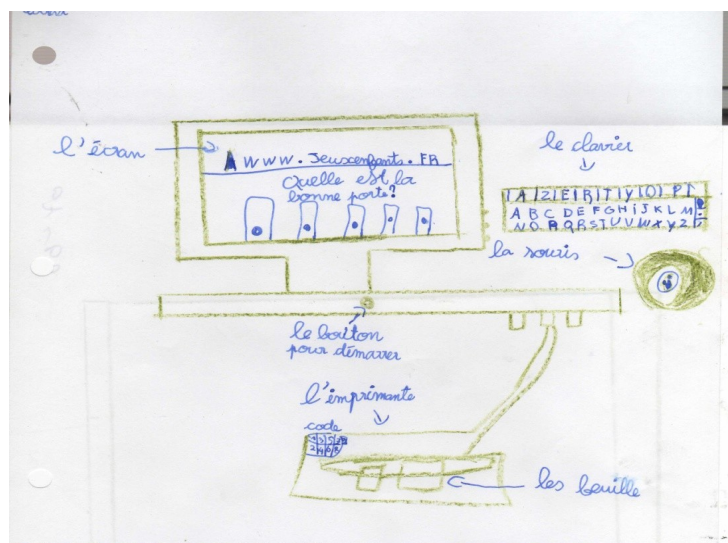 l'écran
A www.Jeuxenfants.FR
Quelle est la
bonne porte?
le clavier
A Z E R T Y O P
A B C D E F G H i J K L M
N O P Q R S T U V W X Y Z
la souris
le bouton
pour démarrer
l'imprimante
code
les feuille